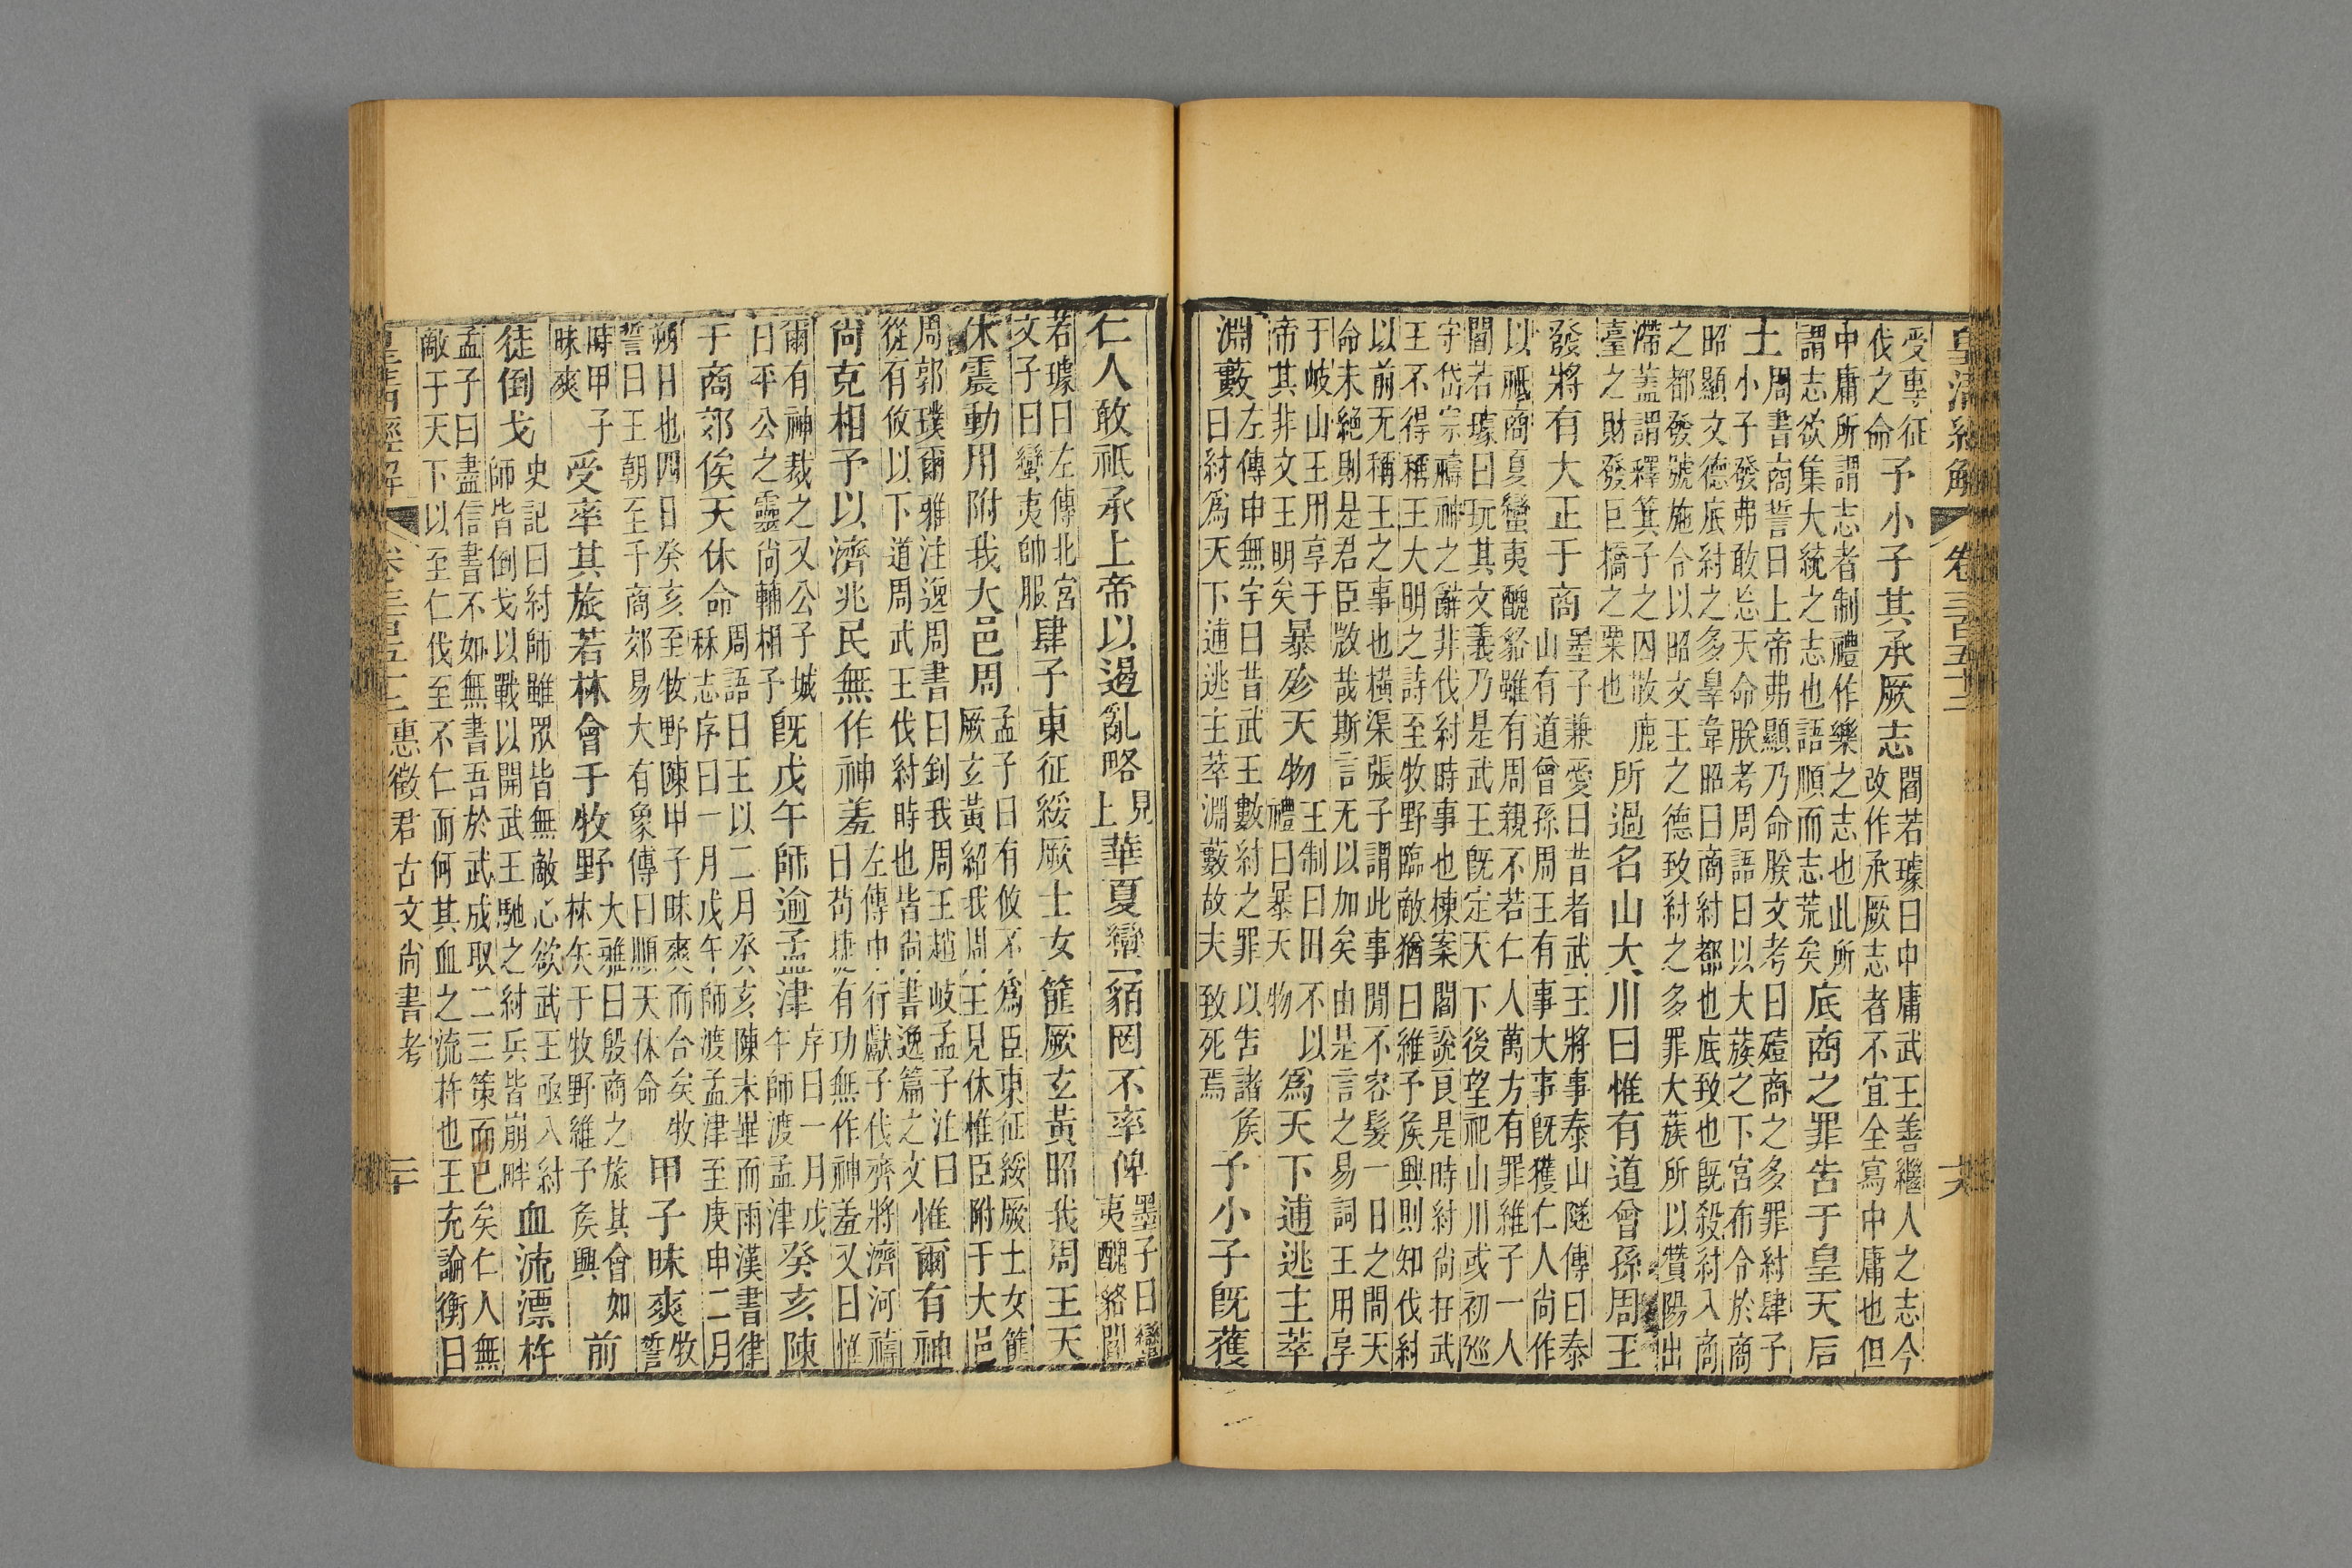 皇清經解　卷三百五十二
受專征
伐之命
予小子其承厥志
閻若璩曰中庸武王善繼人之志今
改作承厥志者不宜全寫中庸也但
中庸所謂志者制禮作樂之志也此所
謂志欲集大統之志也語順而志荒矣
底商之罪告于皇天后
土
周書商誓曰上帝弗顯乃命朕文考曰殪商之多罪紂肆予
小子發弗敢忘天命朕考周語曰以大蔟之下宮布令於商
昭顯文德底紂之多辠韋昭曰商紂都也底致也既殺紂入商
之都發號施令以昭文王之德致紂之多罪大蔟所以贊陽出
滯蓋謂釋箕子之囚散鹿
臺之財發巨橋之粟也
所過名山大川曰惟有道曾孫周王
發將有大正于商
墨子兼愛曰昔者武王將事泰山隧傳曰泰
山有道曾孫周王有事大事既獲仁人尚作
以祗商夏蠻夷醜貉雖有周親不若仁人萬方有罪維予一人
閻若璩曰玩其文義乃是武王既定天下後望祀山川或初巡
守岱宗禱神之辭非伐紂時事也棟案閻說良是時紂尚在武
王不得稱王大明之詩至牧野臨敵猶曰維予侯興則知伐紂
以前无稱王之事也橫渠張子謂此事閒不容髮一日之閒天
命未絕則是君臣㪚哉斯言无以加矣由是言之易詞王用享
于岐山王用享于
帝其非文王明矣
暴殄天物
王制曰田不以
禮曰暴天物
爲天下逋逃主萃
淵藪
左傳申無宇曰昔武王數紂之罪以告諸侯
曰紂爲天下逋逃主萃淵藪故夫致死焉
予小子既獲
仁人敢祗承上帝以遏亂略
見
上
華夏蠻貊罔不率俾
墨子曰蠻
夷醜貉閻
若璩曰左傳北宮
文子曰蠻夷帥服
肆予東征綏厥士女篚厥玄黃昭我周王天
休震動用附我大邑周
孟子曰有攸不爲臣東征綏厥士女篚
厥玄黃紹我周王見休惟臣附于大邑
周郭璞爾雅注逸周書曰釗我周王趙岐孟子注曰
從有攸以下道周武王伐紂時也皆尚書逸篇之文
惟爾有神
尚克相予以濟兆民無作神羞
左傳中行獻子伐齊將濟河禱
曰苟捷有功無作神羞又曰惟
爾有神裁之又公子城
曰平公之靈尚輔相予
既戊午師逾孟津
序曰一月戊
午師渡孟津
癸亥陳
于商郊俟天休命
周語曰王以二月癸亥陳未畢而雨漢書律
秝志序曰一月戊午師渡孟津至庚申二月
朔日也四日癸亥至牧野陳甲子昧爽而合矣牧
誓曰王朝至于商郊易大有象傳曰順天休命
甲子昧爽
牧
誓
時甲子
昧爽
受率其旅若林會于牧野
大雅曰殷商之旅其會如
林矢于牧野維予侯興
前
徒倒戈
史記曰紂師雖眾皆無敵心欲武王亟入紂
師皆倒戈以戰以開武王馳之紂兵皆崩畔
血流漂杵
孟子曰盡信書不如無書吾於武成取二三策而已矣仁人無
敵于天下以至仁伐至不仁而何其血之流杵也王充論衡曰
皇清經解　卷三百五十二　惠徵君古文尚書考　二十